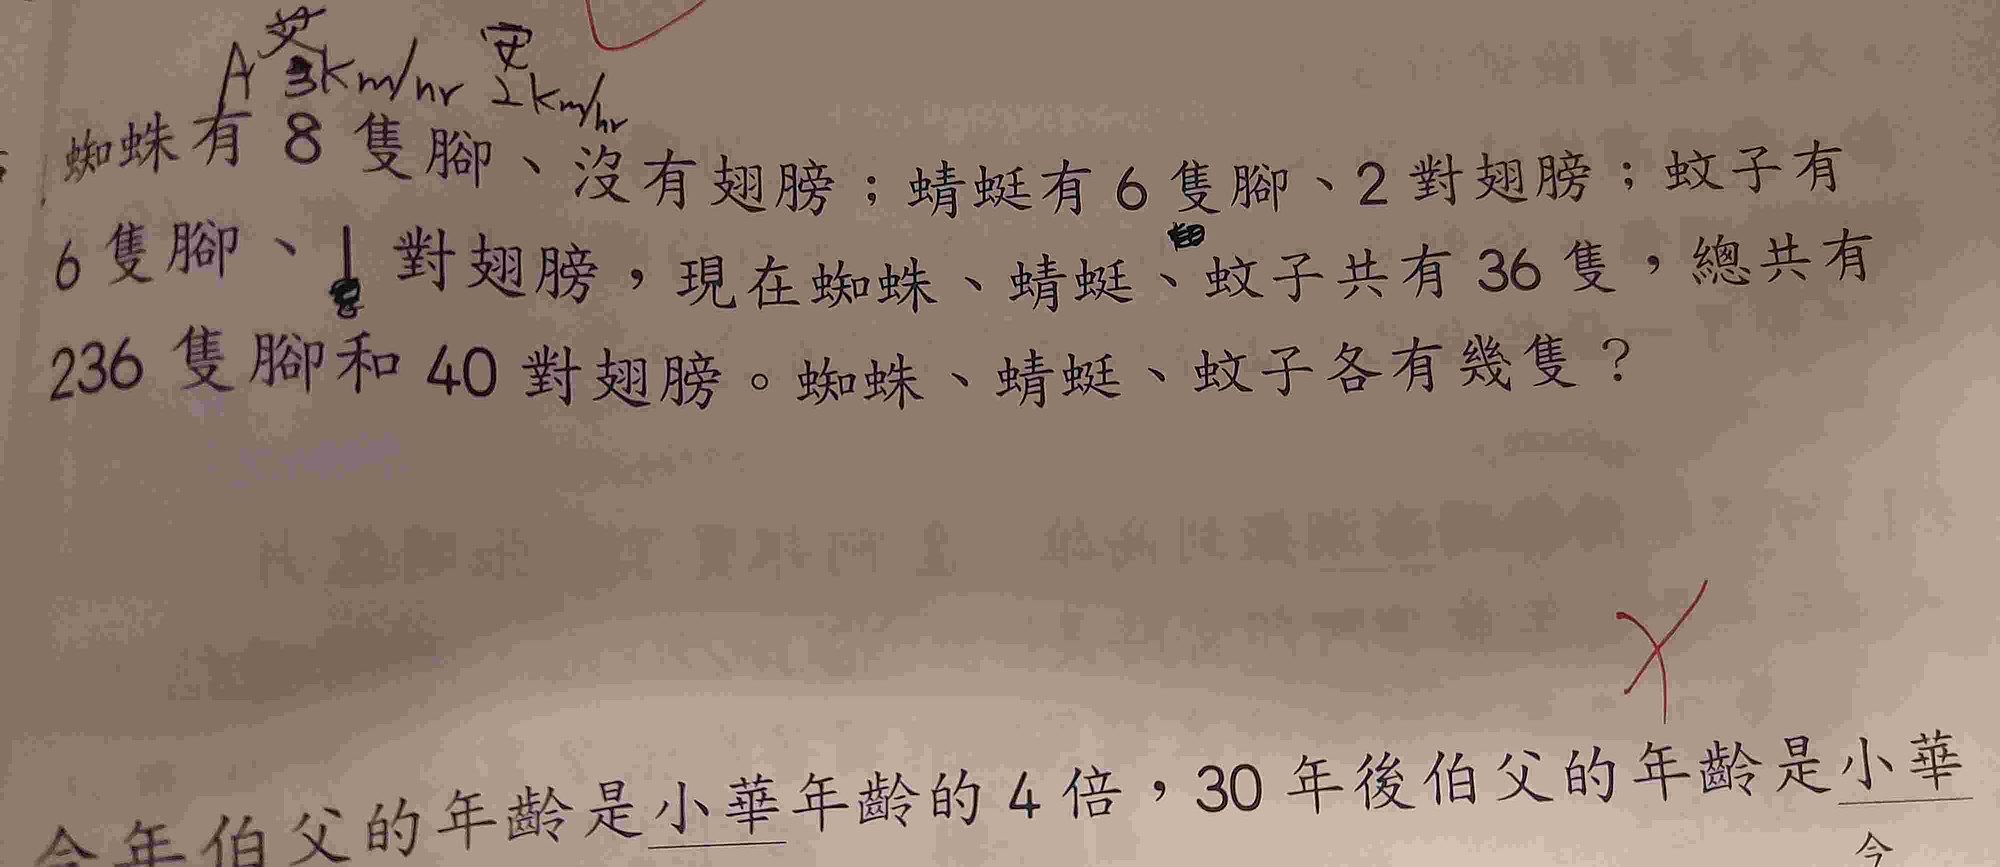 A 艾 3km/hr 安 2km/hr
蜘蛛有 8 隻腳、沒有翅膀；蜻蜓有 6 隻腳、2 對翅膀；蚊子有
6 隻腳、1 對翅膀，現在蜘蛛、蜻蜓、蚊子共有 36 隻，總共有
236 隻腳和 40 對翅膀。蜘蛛、蜻蜓、蚊子各有幾隻？
今年伯父的年齡是小華年齡的 4 倍，30 年後伯父的年齡是小華
今